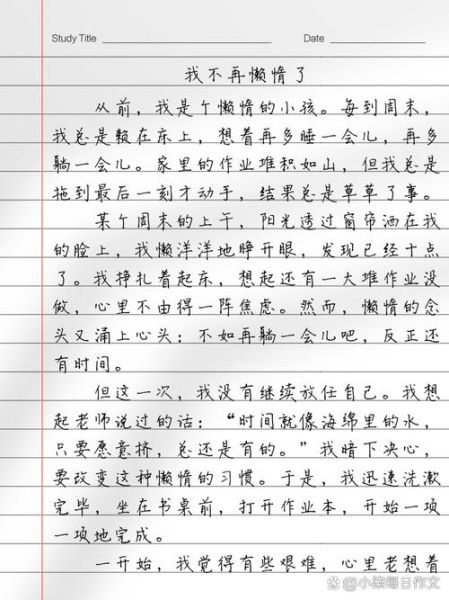 Study Title
Date
我不再懒惰了
从前，我是个懒惰的小孩。每到周末，
我总是赖在床上，想着再多睡一会儿，再多
躺一会儿。家里的作业堆积如山，但我总是
拖到最后一刻才动手，结果总是草草了事。
某个周末的上午，阳光透过窗帘洒在我
的脸上，我懒洋洋地睁开眼，发现已经十点
了。我挣扎着起床，想起还有一大堆作业没
做，心里不由得一阵焦虑。然而，懒惰的念
头又涌上心头：不如再躺一会儿吧，反正还
有时间。
但这一次，我没有继续放任自己。我想
起老师说过的话：“时间就像海绵里的水，
只要愿意挤，总还是有的。”我暗下决心，
要改变这种懒惰的习惯。于是，我迅速洗漱
完毕，坐在书桌前，打开作业本，开始一项
一项地完成。
一开始，我觉得有些艰难，心里老想着
小柒每日作文